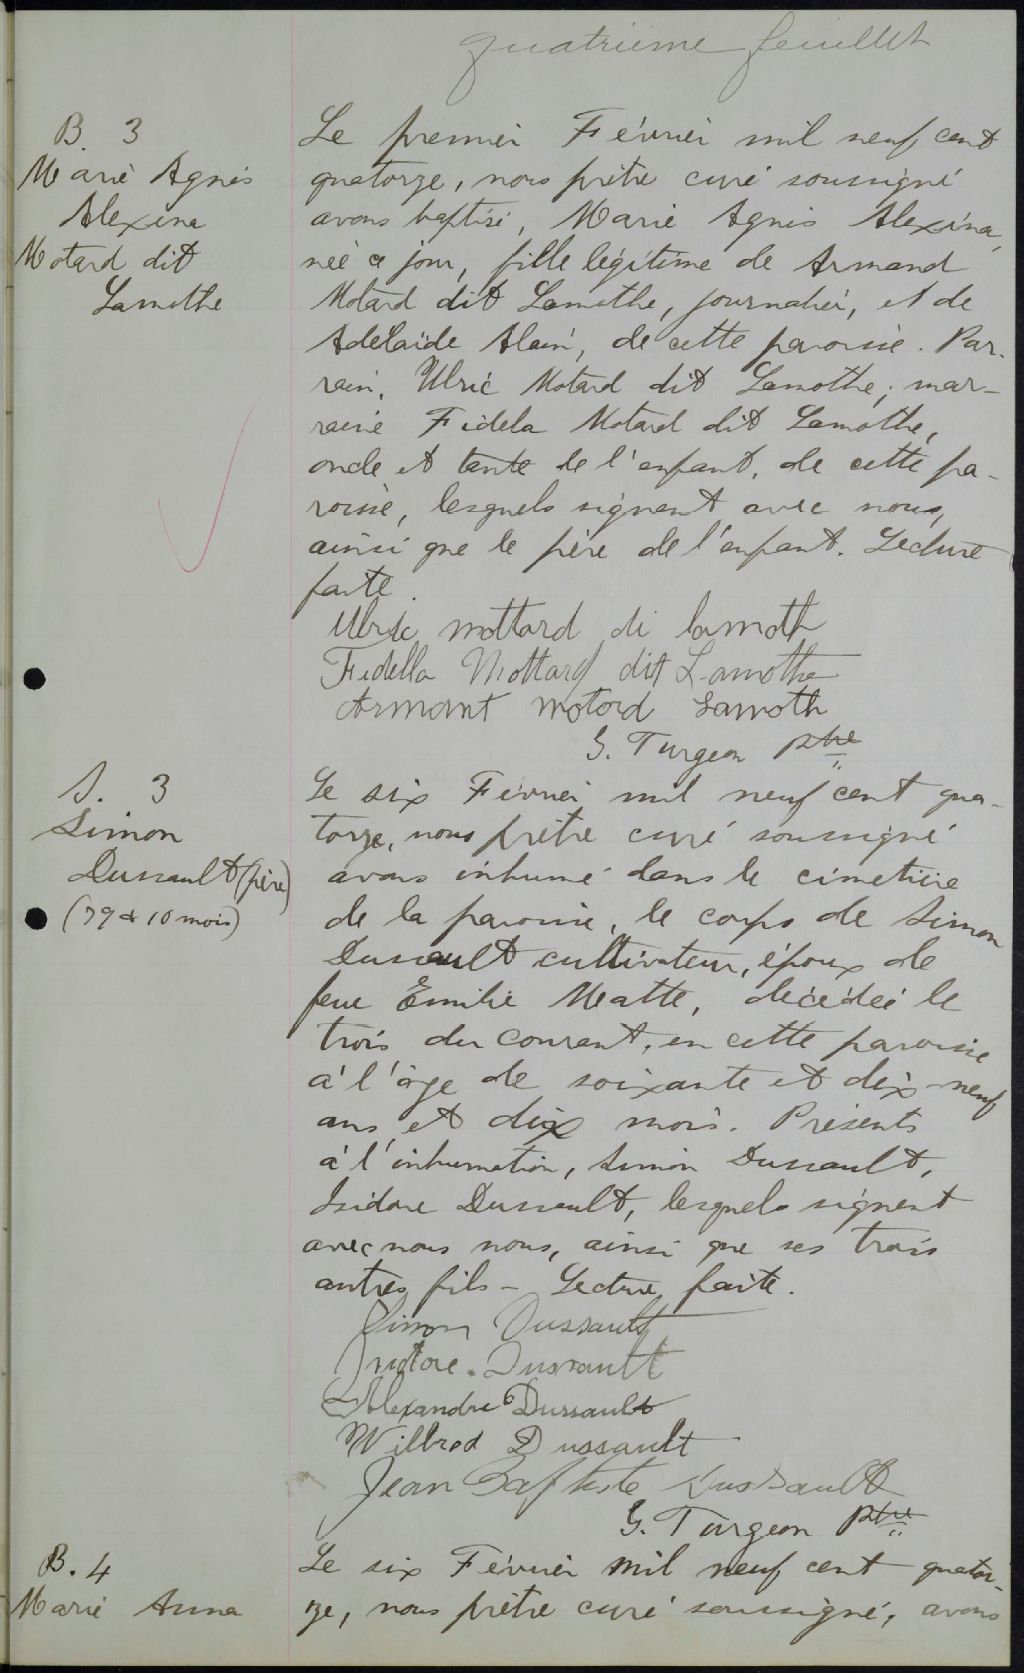 quatrième feuillet
B. 3
Marie Agnès
Alexina
Motard dit
Lamothe
Le premier Février mil neuf cent
quatorze, nous prêtre curé soussigné
avons baptisé, Marie Agnès Alexina,
née ce jour, fille légitime de Armand
Motard dit Lamothe, journalier, et de
Adelaïde Alain, de cette paroisse. Par-
rain, Ulric Motard dit Lamothe; mar-
raine Fidela Motard dit Lamothe,
oncle et tante de l'enfant, de cette pa-
roisse, lesquels signent avec nous,
ainsi que le père de l'enfant. Lecture
faite.
Ulric mottard di lamoth
Fidella Mottard dit Lamothe
Armant motord Lamoth
G. Turgeon Ptre
S. 3
Simon
Dussault (père)
(79 & 10 mois)
Le six Février mil neuf cent qua-
torze, nous prêtre curé soussigné
avons inhumé dans le cimetière
de la paroisse, le corps de Simon
Dussault cultivateur, époux de
feue Emilie Matte, décédé le
trois du courant, en cette paroisse
à l'âge de soixante et dix-neuf
ans et dix mois. Présents
à l'inhumation, Simon Dussault,
Isidore Dussault, lesquels signent
avec nous nous, ainsi que ses trois
autres fils - Lecture faite.
Simon Dussault
Isidore Dussault
Alexandre Dussault
Wilbrod Dussault
Jean Baptiste Dussault
G. Turgeon Ptre
B. 4
Marie Anna
Le six Février mil neuf cent quator-
ze, nous prêtre curé soussigné, avons